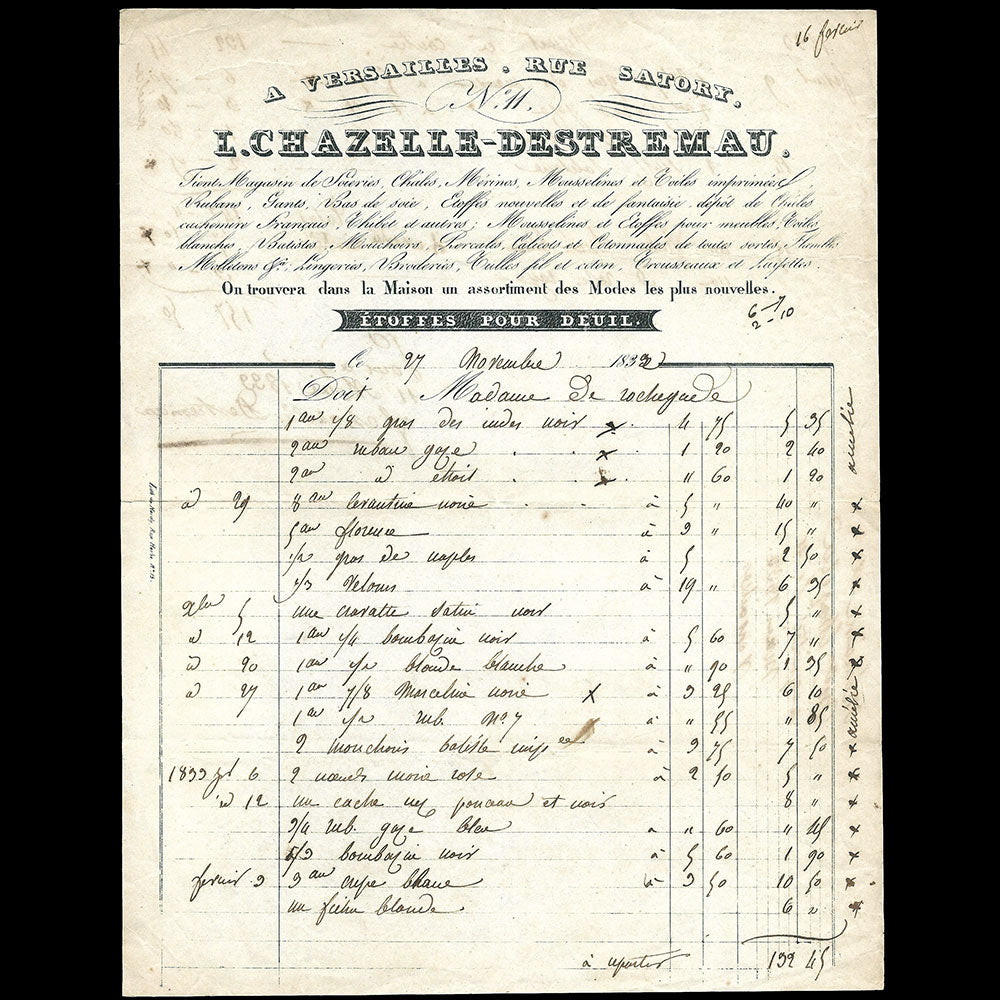 16 février
A VERSAILLES, RUE SATORY,
N.º 11.
L. CHAZELLE-DESTREMAU,
Tient Magasin de Soieries, Châles, Mérinos, Mousselines et Toiles imprimées,
Rubans, Gants, Bas de soie, Etoffes nouvelles et de fantaisie, dépôt de Châles
cachemire Français, Thibet et autres; Mousselines et Etoffes pour meubles, Toiles
blanches, Batistes, Mouchoirs, Percales, Calicots et Cotonnades de toutes sortes, Flanelle
Molletons &a; Lingeries, Broderies, Tulles fil et coton, Trousseaux et Layettes.
On trouvera dans la Maison un assortiment des Modes les plus nouvelles.
2 - 10
ÉTOFFES POUR DEUIL.
le 27 Novembre 1832
Doit Madame De rochegude
1 au 1/8 gros des indes noir x 4 75 5 35
2 au ruban gaze x 1 20 2 40
2 au d étroit x " 60 1 20
amélie
d 29 8 au levantine noire à 5 " 40 " x
5 au florence à 3 " 15 " x
1/2 gros de naples à 5 2 50 x
1/3 velours à 19 " 6 35 x
Xbre 5 une cravatte satin noir 5 " x
d 12 1 au 1/4 bombazine noir à 5 60 7 " x
d 20 1 au 1/2 blonde blanche à " 90 1 35 x
d 27 1 au 7/8 Marceline noire x à 3 25 6 10
1 au 1/2 rub. No. 7 à " 55 " 85
amélie
2 mouchoirs batiste à 3 75 7 50 x
1833 6 2 nœuds moire rose à 2 50 5 " x
d 12 un cache nez ponceau et noir 8 " x
3/4 rub. gaze bleu à " 60 " 45 x
1/3 bombazine noir à 5 60 1 90 x
février 3 3 au crepe blanc à 3 50 10 50 x
un fichu blonde 6 "
à reporter 132 45